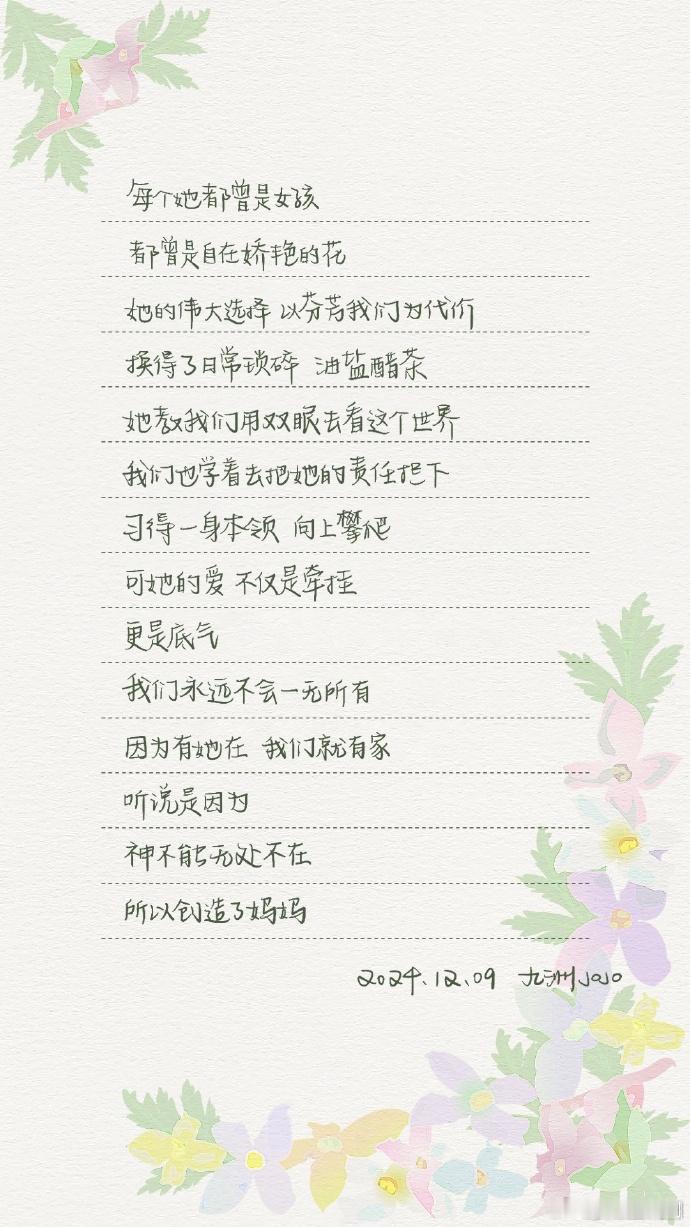 每个她都曾是女孩
都曾是自在娇艳的花
她的伟大选择 以芬芳我们为代价
换得了日常琐碎 油盐醋茶
她教我们用双眼去看这个世界
我们也学着去把她的责任担下
习得一身本领 向上攀爬
可她的爱 不仅是牵挂
更是底气
我们永远不会一无所有
因为有她在 我们就有家
听说是因为
神不能无处不在
所以创造了妈妈
2024.12.09 九洲JOJO